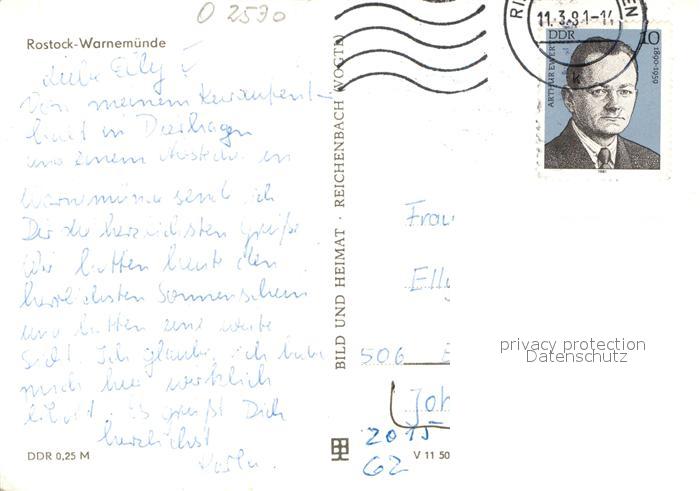 O 2590
Rostock-Warnemünde
Liebe Elly!
Von meinem Kuraufent-
halt in Dierhagen
und einem Abstecher in
Warnemünde send ich
Dir die herzlichsten Grüße
Wir hatten heute den
herrlichsten Sonnenschein
und hatten eine weite
Sicht. Ich glaube, ich habe
mich hier wirklich
erholt. Es grüßt Dich
herzlichst
DDR 0,25 M
BILD UND HEIMAT · REICHENBACH (VOGTL)
11.3.81-14
DDR 10
ARTHUR EWERT
1890-1959
1981
Frau
Elly
506 E
Joh
2015
62
V 11 50
privacy protection
Datenschutz